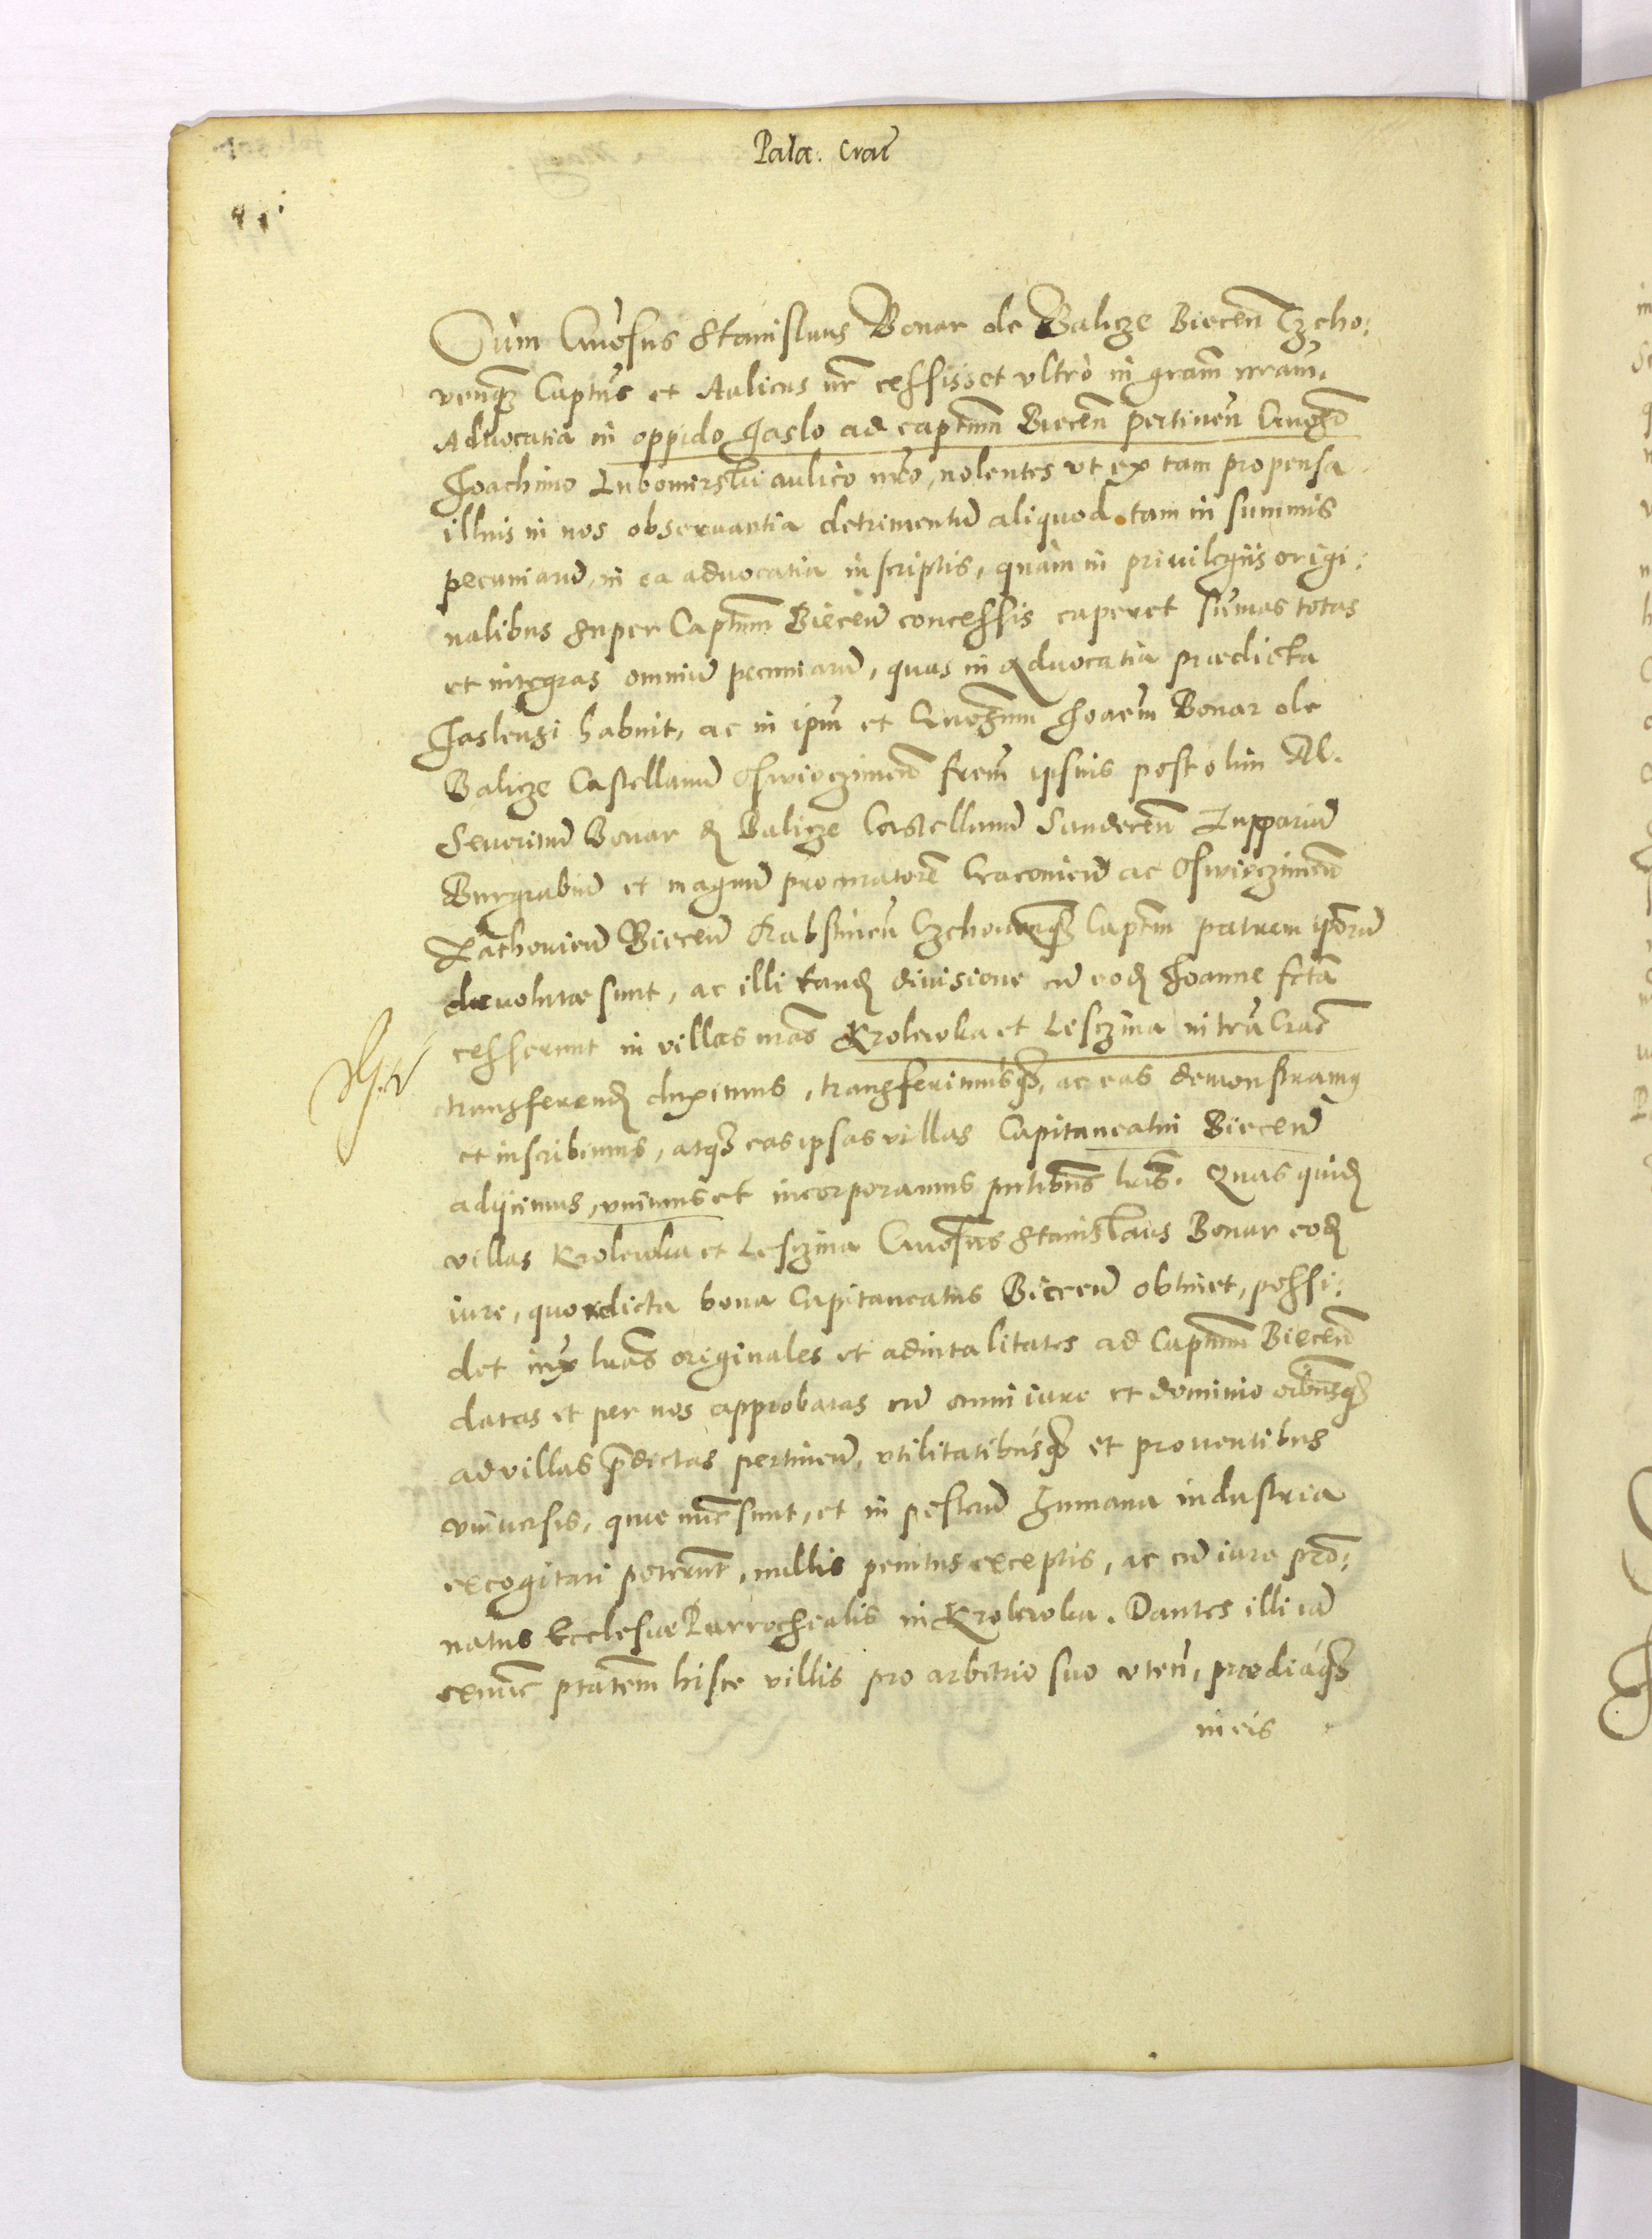 Pala. Crac̃
Cum Gñosus Stanislaus Bonar de Balicze Biecen̄ Czcho:
venq̃ Captñs et Aulicus nr̃ cessisset vltrò in gram̃ nram̃,
Aduocatia in oppido Jaslo ad captm̃ Biecen̄ pertinen̄ Gñoso
Joachimo Lubomirski aulico nrõ, nolentes vt ex tam propensa
illius in nos obseruantia detrimentū aliquod tam in summis
pecuniarū, in ea aduocatia inscriptis, quàm in priuilegiis origi:
nalibus super Captm̃ Biecen̄ concessis caperet sum̃as totas
et integras omniū pecuniarū, quas in Aduocatia prædicta
Jaslensi habuit, ac in ipm̃ et Gñosum Joaem̃ Bonar de
Balicze Castellanū Oswieczimen̄ frem̃ ipsius post olim M.
Seuerinū Bonar de Balicze Castellanū Sandecen̄ Zuppariū
Burgrabiū et magnū procuratorē Cracovien̄ ac Oswieczimen̄
Zathovien̄ Biecen̄ Rabstinen̄ Czchovenq̃ Captm̃ patrem ipsorū
deuolutæ sunt, ac illi tandē diuisione cū eodē Joanne fctã
cesserunt in villas nras̃ Krolewka et Lesczina in tra Crac̃
transferendē duximus, transferimusq̃, ac eas demonstramus
et inscribimus, atq̃ eas ipsas villas Capitaneatui Biecen̄
adijcimus, vnimus et incorporamus pntibũs lris̃. Quas quidē
villas Krolewka et Lesczina Gñosus Stanislaus Bonar eodē
iure, quo dicta bona Capitaneatus Biecen̄ obtinet, possi:
det iux lras̃ originales et aduitalitates ad Captm̃ Biecen̄
datas et per nos approbatas cū omni iure et dominio oibũsq̃
ad villas p̄dictas pertinen̄, vtilitatibusq̃ et prouentibus
vniuersis, quae nunc̃ sunt, et in posterū humana industria
excogitari poterunt̃, nullis penitus exceptis, ac cū iure pro̅:
natus Ecclesiæ Parrochialis in Krolewka. Dantes illi iā
exnunc̃ ptatem̃ hisce villis pro arbitrio suo vten̄, prædiaq̃
in eis